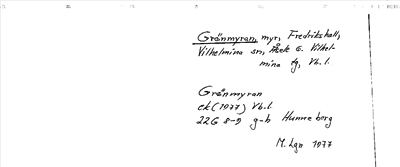 Granmyran, myr, Fredrikshall,
Vilhelmina sn, Åsele o. Vilhel-
mina tg, Vb. l.
Granmyran
ek (1977) Vb. l.
22G 8-9 g-h Hunneborg
M. Lgn 1977